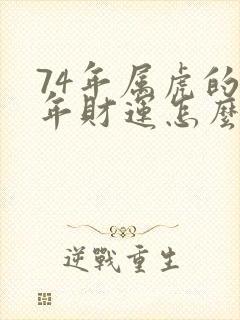 74年属虎的
年财运怎麽
逆戰重生